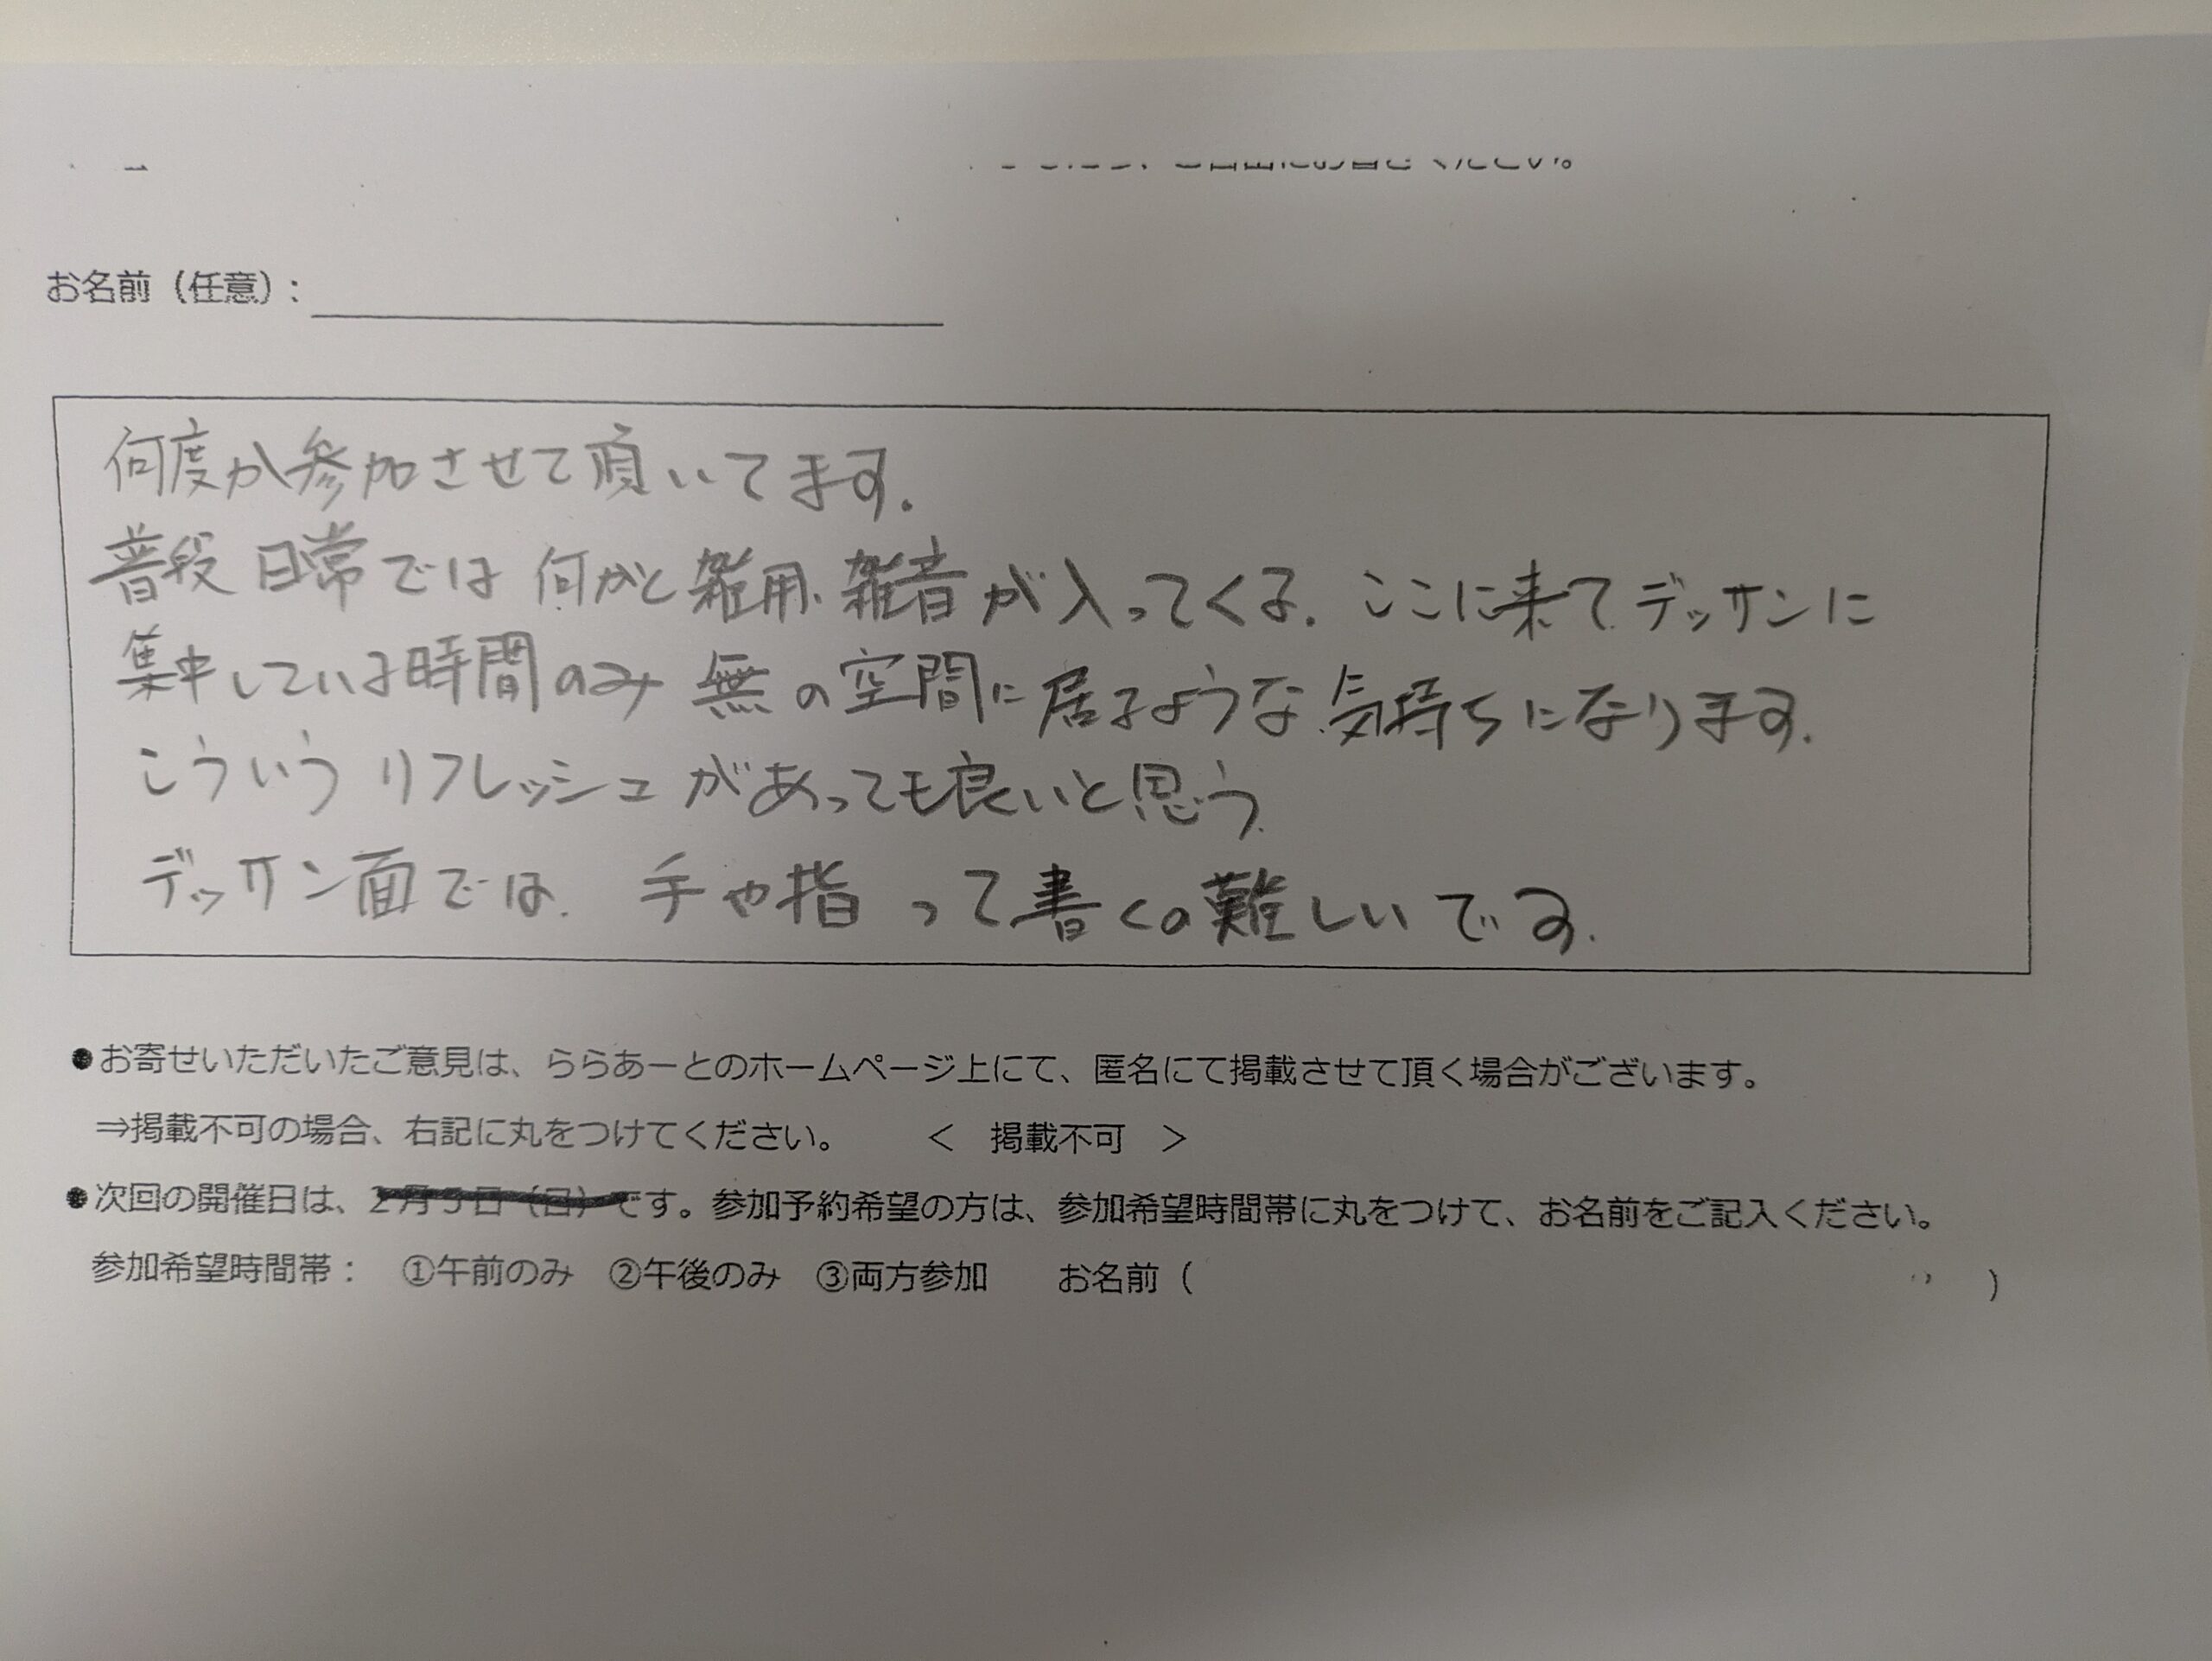 お名前（任意）：
何度か参加させて頂いてます.
普段日常では何かと雑用、雑音が入ってくる. ここに来てデッサンに
集中している時間のみ無の空間に居るような気持ちになります.
こういうリフレッシュがあっても良いと思う.
デッサン面では. 手や指って書くの難しいです.
●お寄せいただいたご意見は、ららあーとのホームページ上にて、匿名にて掲載させて頂く場合がございます。
⇒掲載不可の場合、右記に丸をつけてください。 ＜ 掲載不可 ＞
●次回の開催日は、2月5日（日）です。参加予約希望の方は、参加希望時間帯に丸をつけて、お名前をご記入ください。
参加希望時間帯： ①午前のみ ②午後のみ ③両方参加 お名前（ ）